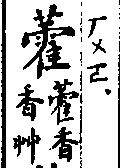 ㄏㄨㄛˋ
藿
藿香
香艸